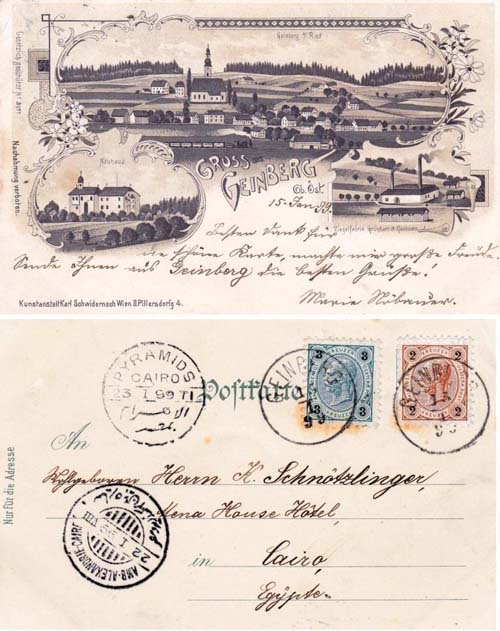 Geinberg b/ Ried
Gesetzlich geschützt
Nachahmung verboten.
Neuhaus
GRUSS aus
GEINBERG
Ob. Öst.
15. Jan. 99.
Besten Dank für
die schöne Karte, machte mir große Freude.
Sende Ihnen aus Geinberg die besten Grüße!
Marie Nöbauer.
Kunstanstalt Karl Schwidernoch Wien II.P.Illersdorfg 4.
PYRAMIDS
CAIRO
23 I 99 TI
الاهرام
مصر
Postkarte
KREUZER
3 3
KREUZER
2 2
GEINBERG
99
GEINBERG
99
An
Nur für die Adresse
Wohlgeboren Herrn K. Schnötzlinger,
Mena House Hôtel,
in
Cairo,
Egypten.
AMB-ALEXANDRIE-CAIRE